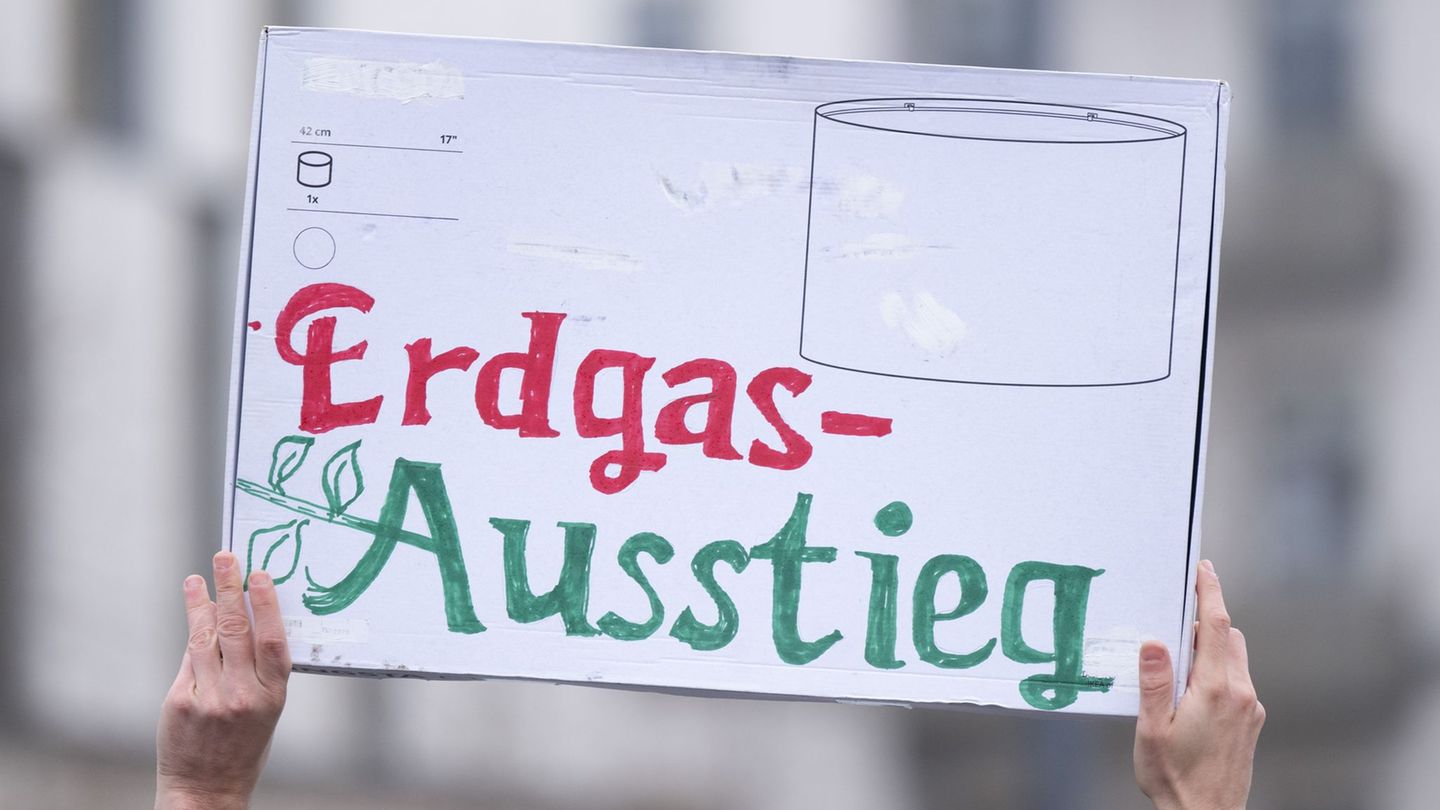 42 cm 17"
1x
Erdgas-
Ausstieg
IKEA